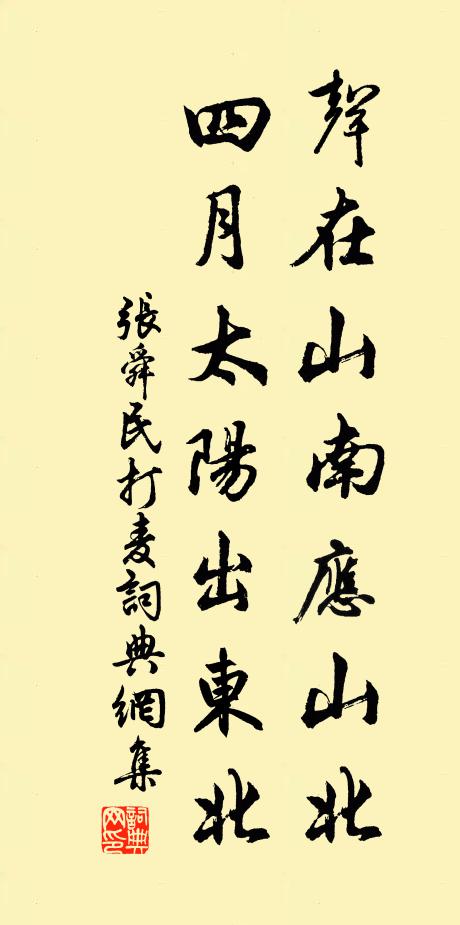 聲在山南應山北
四月太陽出東北
張舜民打麦詞典網集
詞典
网印